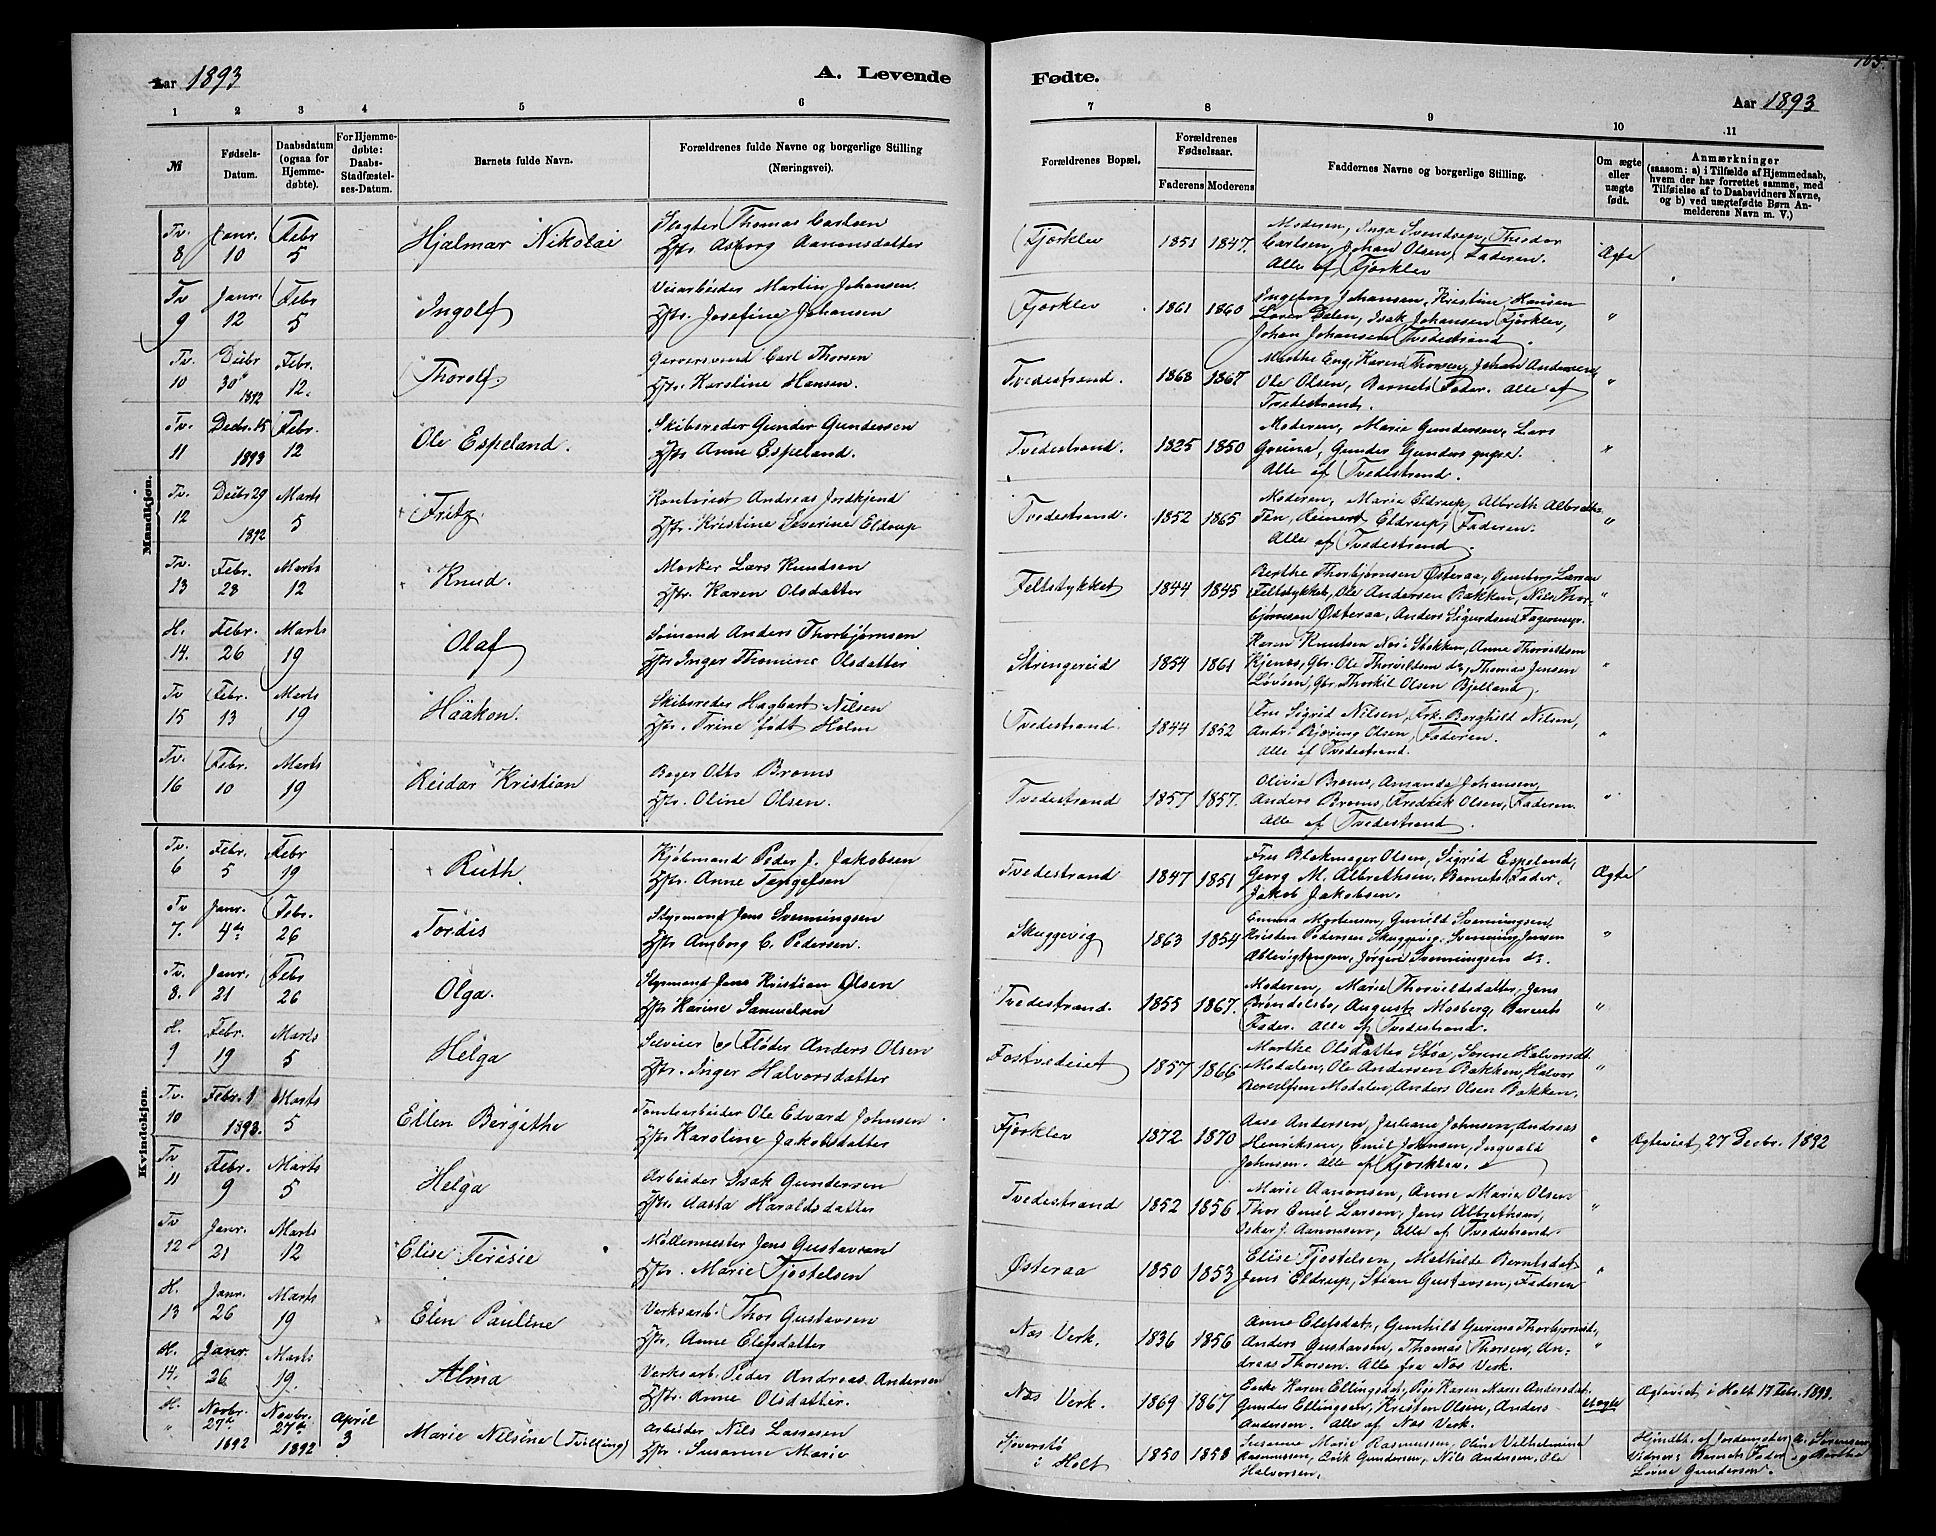 Aar 1893
A. Levende
Fødte.
Aar 1893
1 2 3 4 5 6 7 8 9 10 11
№
Fødsels-Datum.
Daabsdatum (ogsaa for Hjemmedøbte).
For Hjemmedøbte: Daabs-Stadfæstelses-Datum.
Barnets fulde Navn.
Forældrenes fulde Navne og borgerlige Stilling (Næringsvei).
Forældrenes Bopæl.
Forældrenes Fødselsaar.
Faderens Moderens
Faddernes Navne og borgerlige Stilling.
Om ægte eller uægte født.
Anmærkninger
(saasom: a) i Tilfælde af Hjemmedaab, hvem der har forrettet samme, med Tilføielse af to Daabsvidners Navne, og b) ved uægtefødte Børn Anmelderens Navn m. V.)
Mandkjøn.
Tv. 8 Janr. 10 Febr 5 Hjalmar Nikolai Slagter Thomas Carlsen
Hstr. Asborg Aanonsdatter
Fjærklev 1851 1847. Moderen, Inga Svendsen, Theodor
Carlsen, Johan Olsen, Faderen.
Alle af Fjærklev
Ægte
Tv 9 Janr. 12 Febr 5 Ingolf Veiarbeider Martin Johansen.
Hstr. Josefine Johansen
Fjærklev 1861 1860 Ingeborg Johansen, Kristine Hansen
Dalen, Isak Johansen Fjærklev,
Johan Johansen Tvedestrand.
"
Tv. 10 Decbr 30 1892 Febr. 12. Thorolf. Garversvend Carl Thorsen
Hstr. Karoline Hansen.
Tvedestrand. 1868 1867 Marthe Eng, Karen Thorsen, Johan Andersen,
Ole Olsen, Barnets Fader. Alle af
Tvedestrand.
"
Tv. 11 Decbr. 15 1893 Febr. 12 Ole Espeland. Skibsreder Gunder Gundersen
Hstr Anne Espeland.
Tvedestrand. 1825 1850 Moderen, Marie Gundersen, Lars
Gunder
Alle af Tvedestrand.
"
Tv. 12 Decbr 29 1892 Marts 5 Fritz. Kontorist Andreas Jordkjend
Hstr. Kristine Severine Eldrup
Tvedestrand. 1852 1865 Moderen, Marie Eldrup, Albreth Albreth-
sen, Reinert Eldrup, Faderen.
Alle af Tvedestrand.
"
Tv. 13 Febr. 28 Marts 12 Knud. Lars Knudsen
Hstr. Karen Olsdatter
Feltstykket 1844 1845 Berthe Thorbjørnsen Østeraa, Gunborg Larsen
Feltstykket, Ole Andersen Bakken, Nils Thor-
bjørnsen Østeraa, Anders Sigurdsen Fagermyr.
"
H. 14. Febr. 26 Marts 19 Olaf Sømand Anders Thorbjørnsen
Hstr Inger Thomine Olsdatter
Strengereid 1854 1861 Karen Knutsen Næs i Stokken, Anne Thorvildsen
Kjenas, Gbr. Ole Thorvildsen ds, Thomas Jensen
Løvsen, Gbr. Thorkil Olsen Bjelland.
"
Tv 15 Febr. 13 Marts 19 Haakon. Skibsreder Hagbart Nilsen
Hstr. Trine født Holm
Tvedestrand. 1844 1852 Fru Sigrid Nilsen, Frk. Borghild Nilsen,
Andr. Bjøring Olsen, Faderen.
Alle af Tvedestrand.
"
Tv. 16 Febr. 10 Marts 19 Reidar Kristian Bager Otto Broms
Hstr. Oline Olsen.
Tvedestrand 1857 1857. Olivia Broms, Amanda Johansen,
Anders Broms, Fredrik Olsen, Faderen.
Alle af Tvedestrand.
"
Kvindekjøn.
Tv. 6 Febr. 5 Febr 19 Ruth. Kjøbmand Peder J. Jakobsen
Hstr. Anne Tangefsen
Tvedestrand 1847 1851 Fru Blokmager Olsen, Sigrid Espeland,
Georg M. Albrethsen, Barnets Fader,
Jakob Jakobsen.
Ægte
Tv 7. Janr. 4de Febr. 26 Tordis Styrmand Jens Svenningsen
Hstr Amborg C. Pedersen.
Skuggevig 1863 1854 Emma Mortensen, Gunild Svenningsen,
Kristen Pedersen Skuggevig. Svenning Jensen
Æblevigtangen, Jørgen Svenningsen ds.
"
Tv. 8. Janr. 21 Febr 26 Olga. Styrmand Jens Kristian Olsen
Hstr Karine Samuelsen
Tvedestrand. 1855 1867. Moderen, Marie Thorvildsdatter, Jens
Brøndelsbo, August Mosberg, Barnets
Fader. Alle af Tvedestrand.
"
H. 9 Febr. 19 Marts 5 Helga Selveier og Fløder Anders Olsen
Hstr. Inger Halvorsdatter
Fostvedeiet 1857 1866 Marthe Olsdatter Støa, Serine Halvorsdt.
Modalen, Ole Andersen Bakken, Halvor
Modalen, Anders Olsen Bakken.
"
Tv. 10 Febr. 1 1893. Marts 5 Ellen Bergithe Tomtearbeider Ole Edvard Johnsen
Hstr Karoline Jakobsdatter
Fjærklev 1872 1870 Aase Andersen, Juliane Johnsen, Andreas
Henriksen, Emil Johnsen, Ingvald
Johnsen. Alle af Fjærklev.
" Ægteviet 27 Decbr. 1892
Tv 11 Febr. 9 Marts 5 Helga Arbeider Isak Gundersen
Hstr. Aasta Haraldsdatter
Tvedestrand 1852 1856 Marie Aanonsen, Anne Marie Olsen
Thor Emil Larsen, Jens Albrethsen,
Oskar J. Aanonsen, Alle af Tvedestrand.
"
Tv 12 Janr. 21 Marts 12 Elise Terasie Møllermester Jens Gustavsen
Hstr. Marie Fjostelsen
Østeraa 1850 1853 Elise Fjostelsen, Mathilde Berntsdat.
Jens Eldrup, Stian Gustavsen, Faderen
"
H. 13 Janr. 26 Marts 19 Elen Pauline Verksarb. Thor Gustavsen
Hstr. Anne Elefsdatter
Næs Verk. 1836 1856 Anne Elefsdat., Gunhild Gurina Thorbjørnsdt.,
Anders Gustavsen, Thomas Thorsen, An-
dreas Thorsen. Alle fra Næs Verk.
"
H. 14. Janr. 26 Marts 19. Alma Verksarb. Peder Andreas Andersen
Hstr. Anne Olsdatter.
Næs Verk. 1869 1867 Enke Karen Ellingsdat, Pige Karen Marie Andersdat.
Gunder Ellingsen, Kristen Olsen, Anders
Andersen. Alle af Næs Verk.
Uægte Ægteviet i Holt 17 Febr. 1893.
H. " Novbr. 27de 1892 Novbr. 27de 1892 April 3 Marie Nilsine (Tvilling) Arbeider Nils Lassesen
Hstr. Susanne Marie
i Holt 1850 1853 Susanne Marie Rasmussen, Oline Vilhelmine
Rasmussen, Erik Gundersen, Nils Andersen, Ole
Halvorsen.
Hjemdt. af Jordemoder A. Sørensen
Vidner: Barnets Fader og Marthe
Lovise Gundersen.